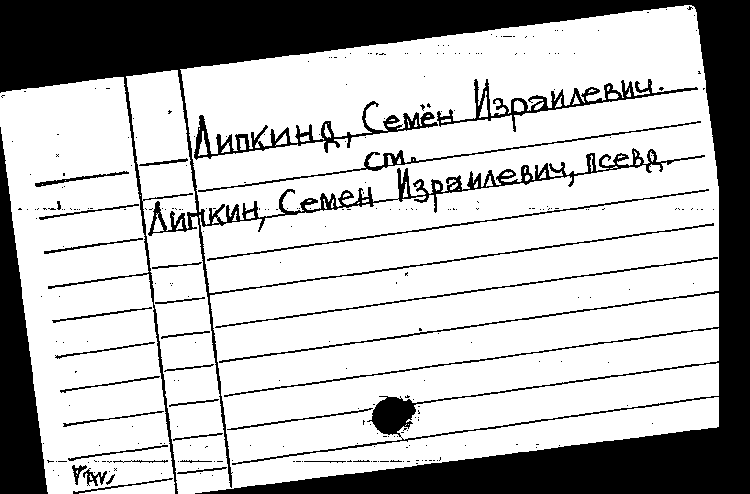 Липкинд, Семён Израилевич.
см.
Липкин, Семен Израилевич, псевд.